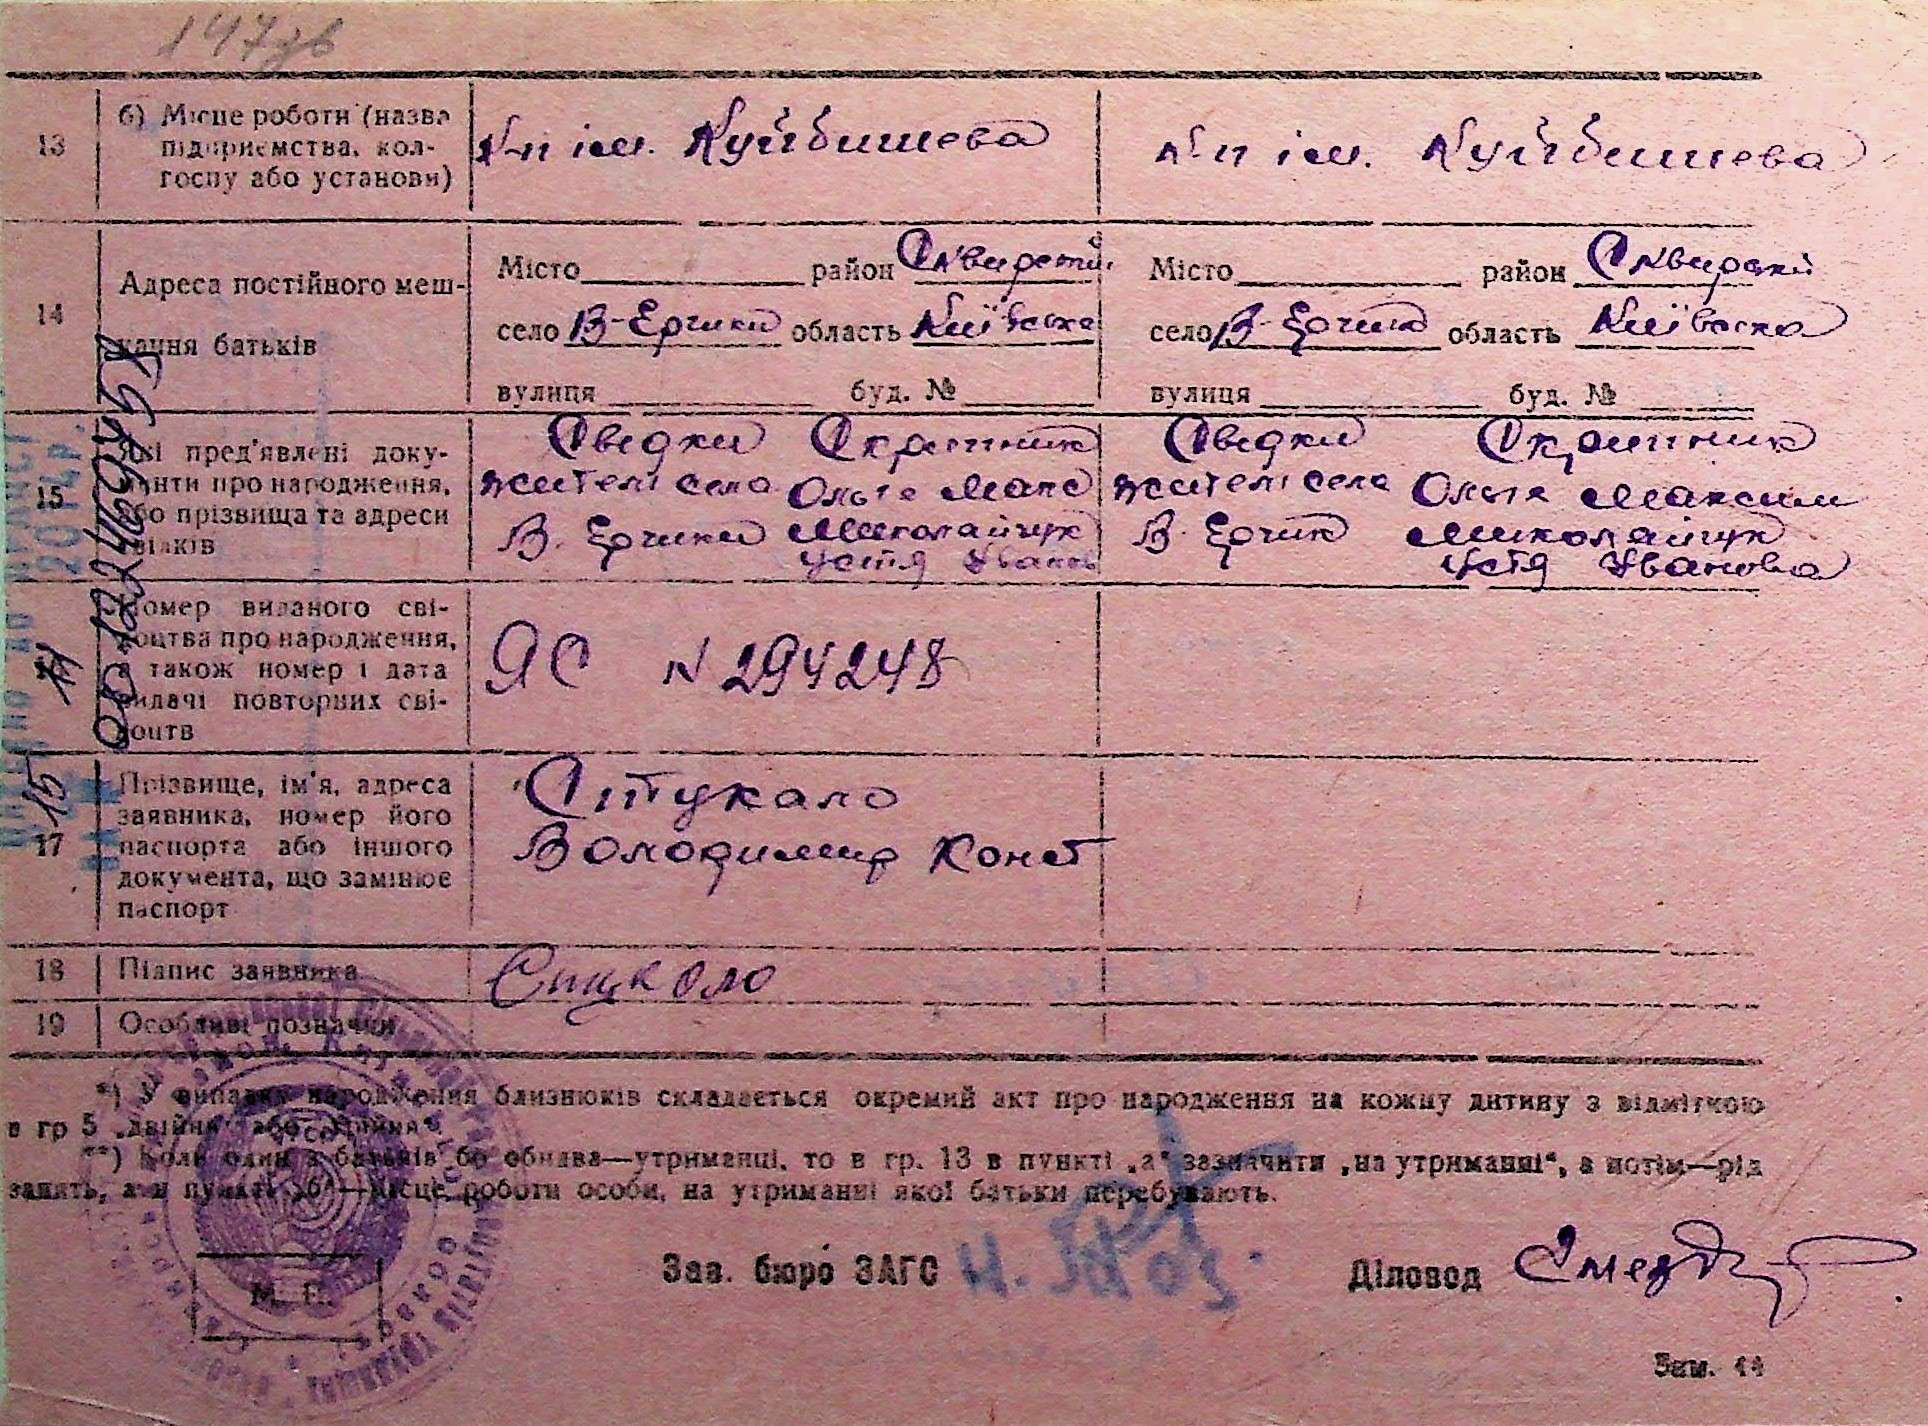 147 зв
13
б) Місце роботи (назва
підприємства, кол-
госпу або установи)
К-п ім. Куйбишева
К-п ім. Куйбишева
14
Адреса постійного меш-
кання батьків
Місто район Сквирський
село В-Ерчики область Київська
вулиця буд. №
Місто район Сквирський
село В-Ерчик область Київська
вулиця буд. №
15
Які пред'явлені доку-
менти про народження,
або прізвища та адреси
свідків
Сведки Скрипник
жителі села Ольга Макс
В. Ерчики Миколайчук
Устя Іванов
Сведки Скрипник
жителі села Ольга Максим
В. Ерчик Миколайчук
Устя Івановна
Номер виданого сві-
доцтва про народження,
а також номер і дата
видачі повторних сві-
доцтв
ЯС N 294248
17
Прізвище, ім'я, адреса
заявника, номер його
паспорта або іншого
документа, що замінює
паспорт
Стукало
Володимир Конст
18
Підпис заявника
Стукало
19
Особливі позначки
*) У випадку народження близнюків складається окремий акт про народження на кожну дитину з відміткою
в гр 5 „двійня" або „трійня".
**) Коли один з батьків бо обидва—утриманці, то в гр. 13 в пункті „а" зазначити „на утриманні", а потім—рід
занять, а в пункті „б"—місце роботи особи, на утриманні якої батьки перебувають.
М. П.
Зав. бюро ЗАГС
Діловод
Зам. 44